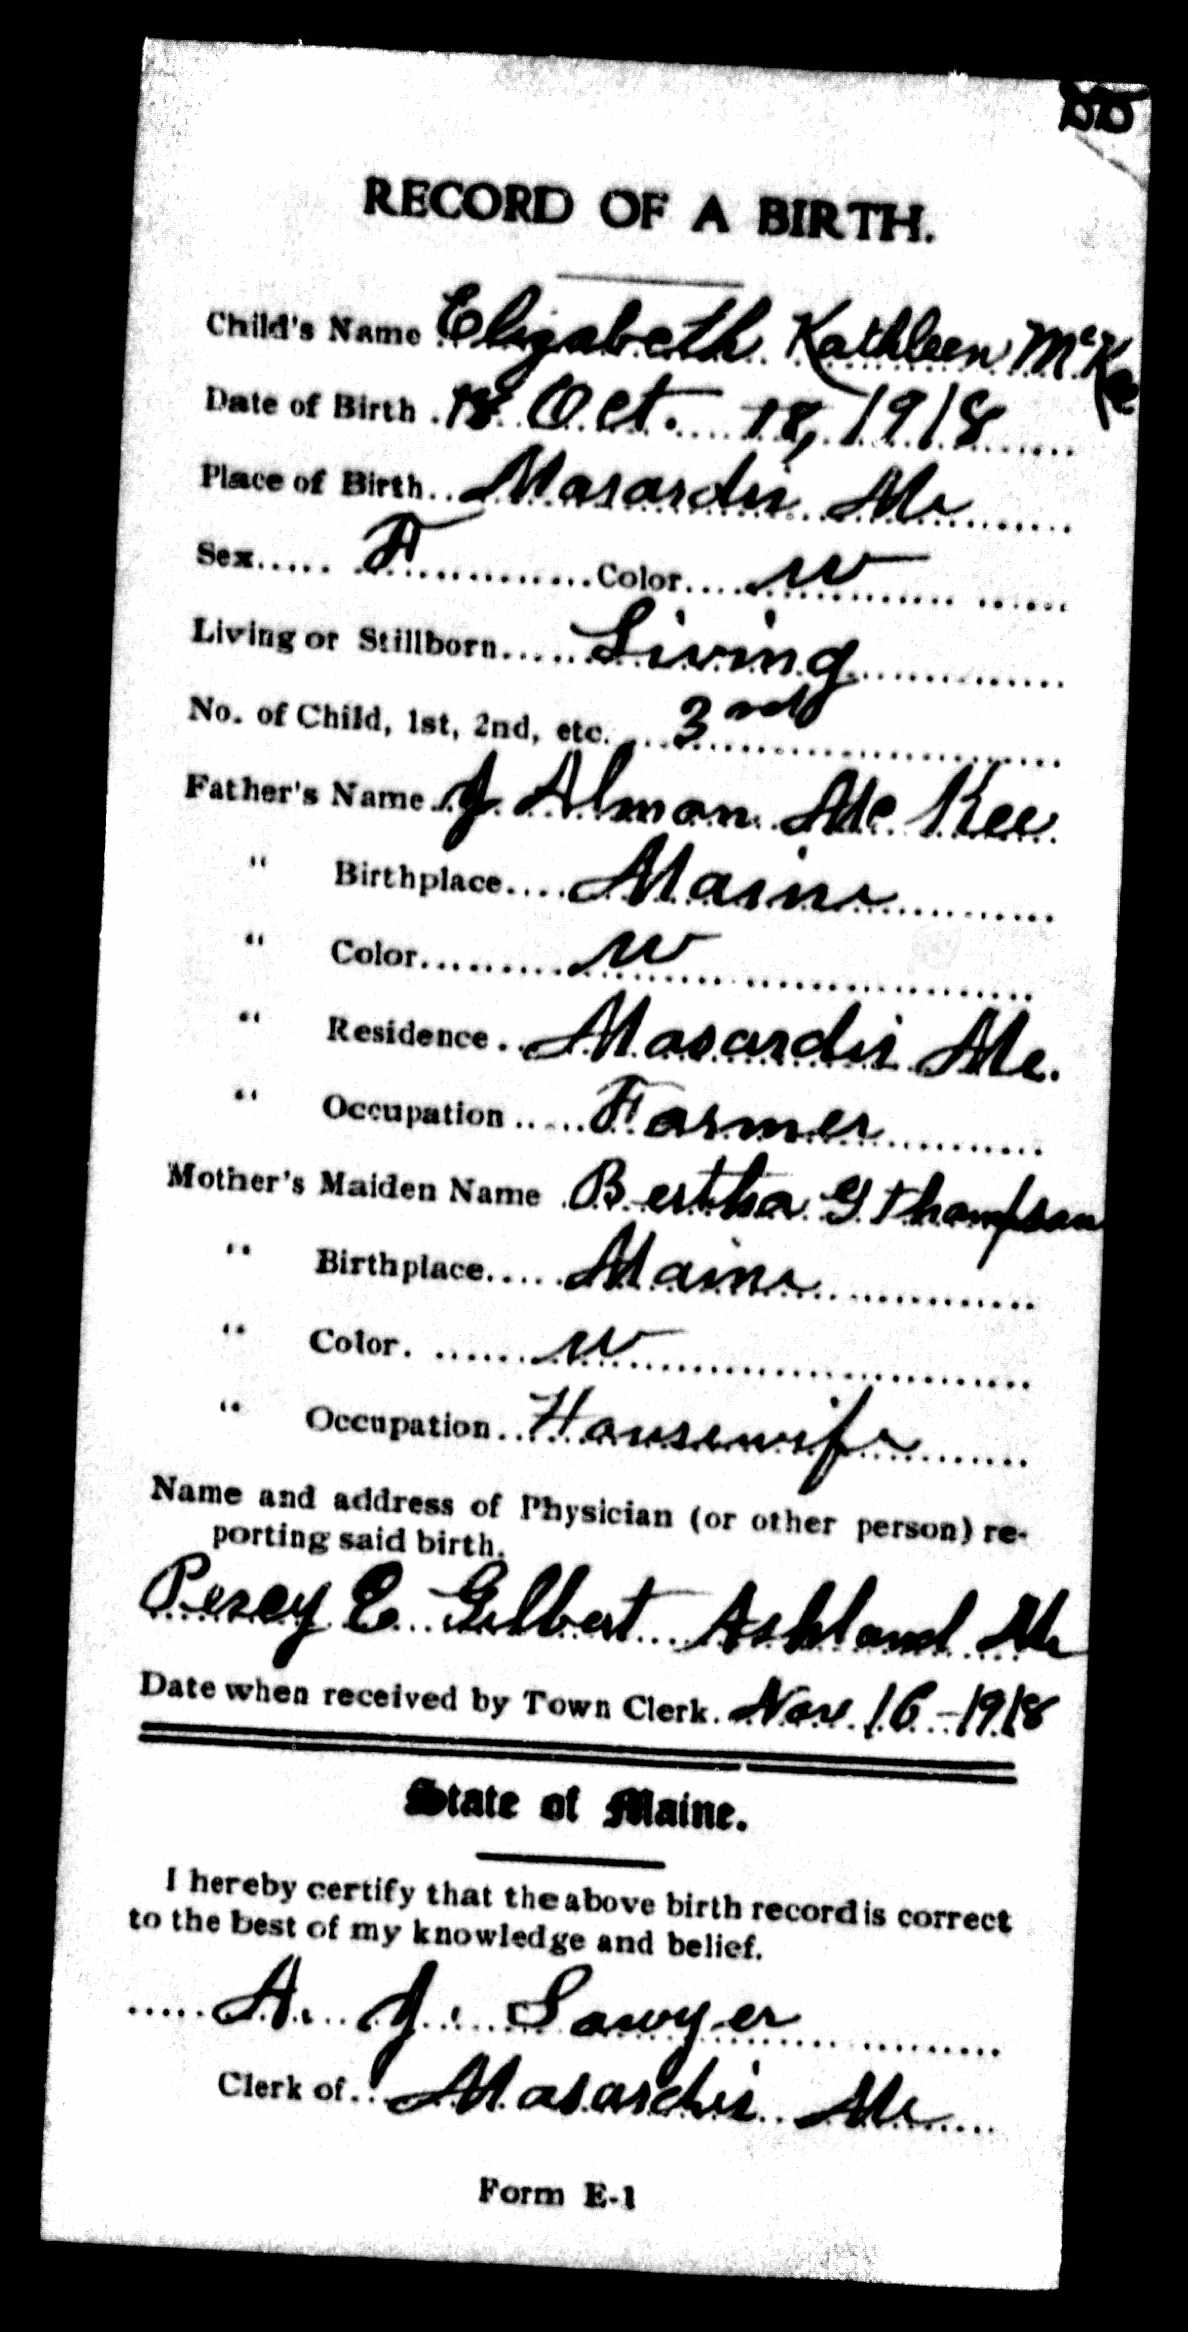 RECORD OF A BIRTH.
Child's Name Elizabeth Kathleen McKee
Date of Birth 18 Oct. 18, 1918
Place of Birth Masardis Me
Sex F Color W
Living or Stillborn Living
No. of Child, 1st, 2nd, etc. 3rd
Father's Name J Almon Mc Kee
" Birthplace Maine
" Color W
" Residence Masardis Me.
" Occupation Farmer
Mother's Maiden Name Bertha G Thompson
" Birthplace Maine
" Color W
" Occupation Housewife
Name and address of Physician (or other person) re-
porting said birth.
Percy E Gilbert Ashland Me
Date when received by Town Clerk. Nov. 16-1918
State of Maine.
I hereby certify that the above birth record is correct
to the best of my knowledge and belief.
A. J. Sawyer
Clerk of Masardis Me
Form E-1